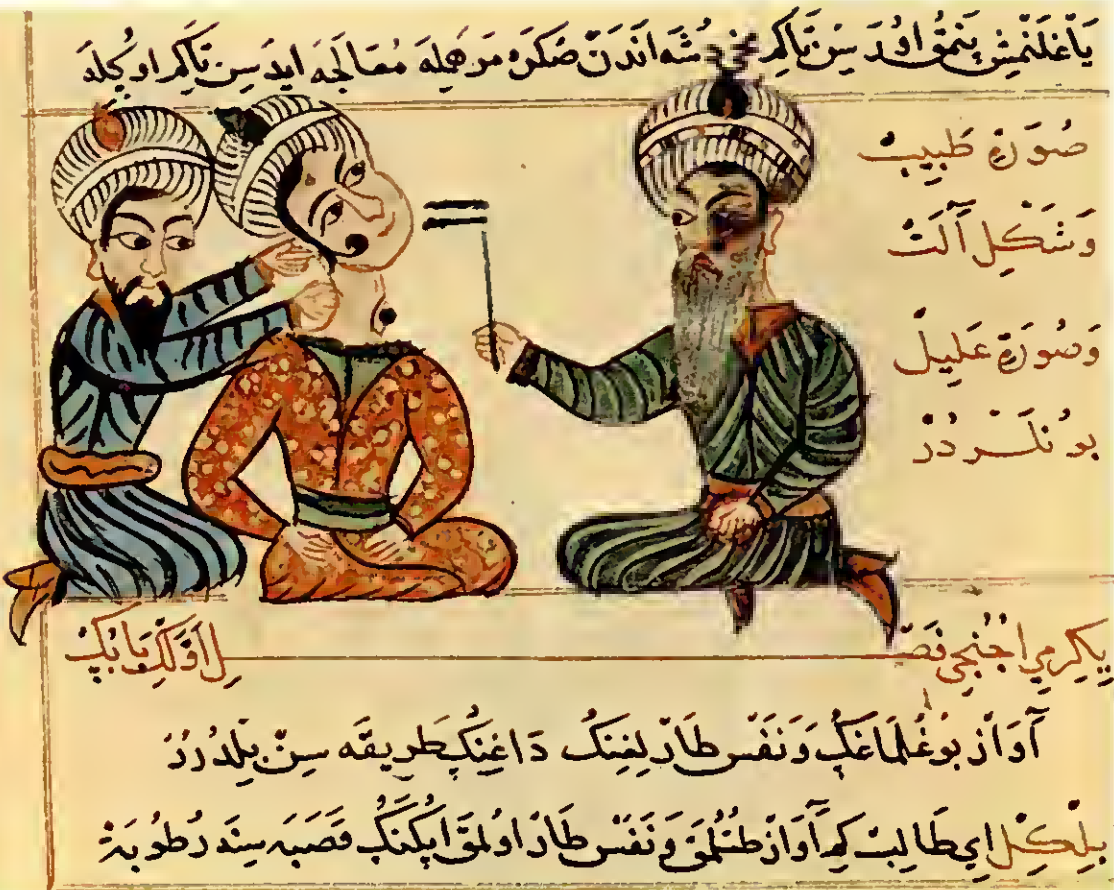 ياغلنمش پنمق اودسن تاكم دشه اندن صكره مرهمله معالجه ايدسن تاكم اوكله
صُورَةِ طَبِيبْ
وَشَكْلِ آلَتْ
وَصُورَةِ عَلِيلْ
بُونلَردُرْ
يكرمي اُجُنجي فَصـلِ اَوَّلكِ بابُكْ
آواز بوغُلماغِكْ وَنَفَس طارلِغِنِكْ داغِينكْ طَرِيقَه سِنْ بِلدُرُرْ
بِلْكِلْ اي طالِبْ كِم آواز طُتُلمَق وَنَفَس طار اولمَق ايكِنِكْ قَصَبَه سِنْدَه رُطُوبَة